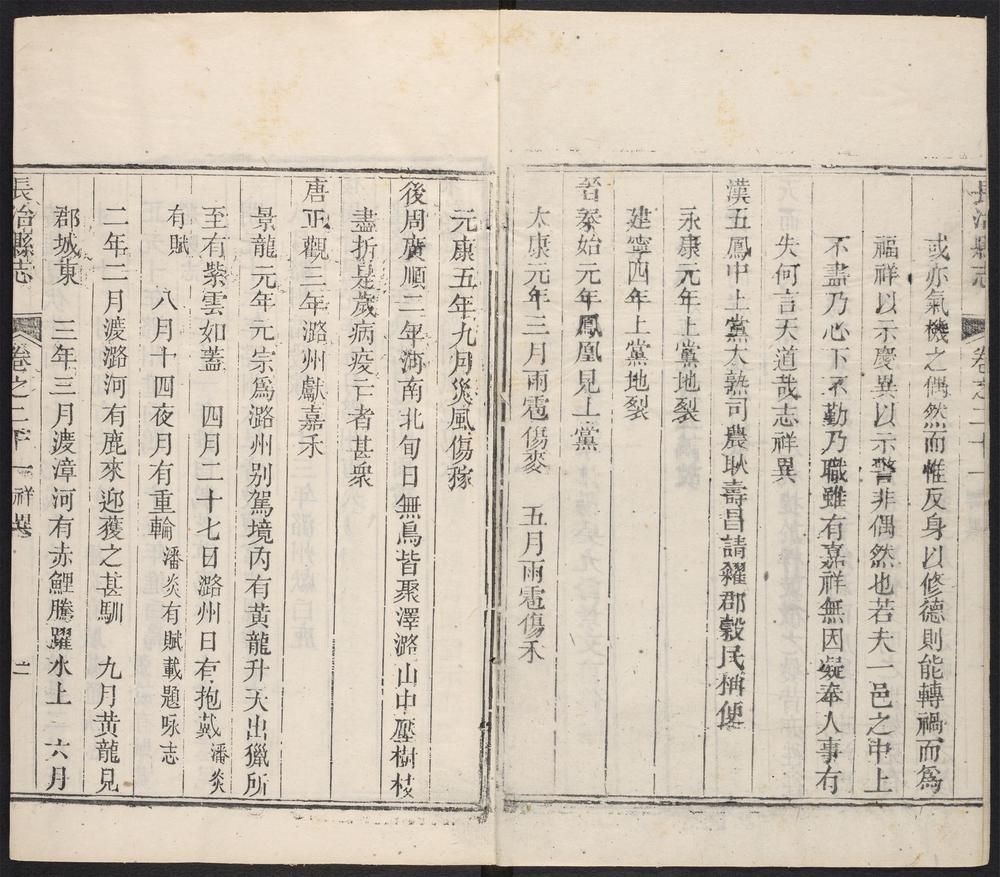 長治縣志 卷之二十一
或亦氣機之偶然而惟反身以修德則能轉禍而爲
福祥以示慶異以示警非偶然也若夫一邑之中上
不盡乃心下不勤乃職雖有嘉祥無因凝奉人事有
失何言天道哉志祥異
漢五鳳中上黨大熟司農耿壽昌請糴郡穀民稱便
永康元年上黨地裂
建寧四年上黨地裂
晉泰始元年鳳凰見上黨
太康元年三月雨雹傷麥 五月雨雹傷禾
元康五年九月災風傷稼
後周廣順二年海南北旬日無鳥皆聚澤潞山中壓樹枝
盡折是歲病疫亡者甚衆
唐正觀三年潞州獻嘉禾
景龍元年元宗爲潞州别駕境內有黃龍升天出獵所
至有紫雲如蓋 四月二十七日潞州日有抱戴潘炎
有賦 八月十四夜月有重輪潘炎有賦載題咏志
二年二月渡潞河有鹿來迎獲之甚馴 九月黄龍見
郡城東 三年三月渡漳河有赤鯉騰躍水上 六月
長治縣志 卷之二十一 祥異 二